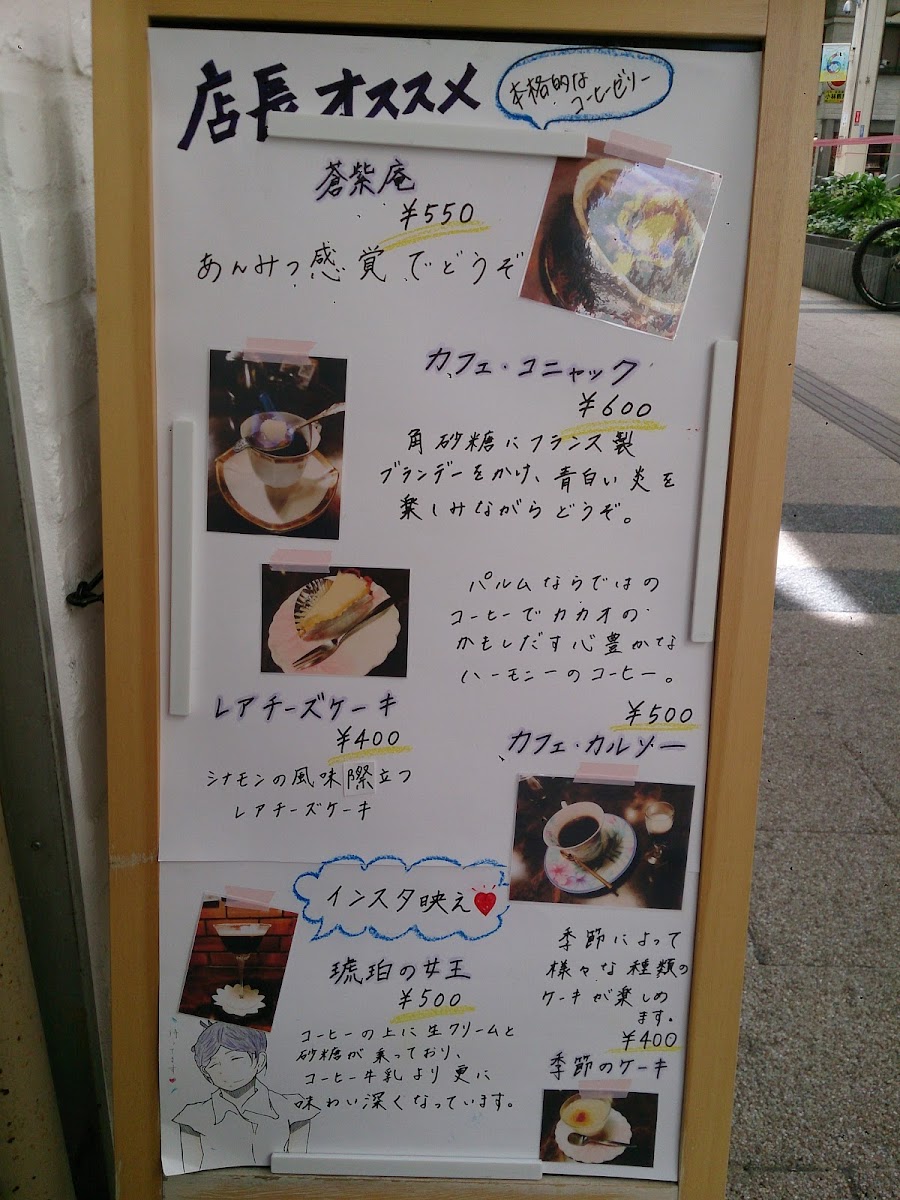 店長オススメ
本格的な
コーヒーゼリー
蒼紫庵
¥550
あんみつ感覚でどうぞ
カフェ・コニャック
¥600
角砂糖にフランス製
ブランデーをかけ、青白い炎を
楽しみながらどうぞ。
パルムならではの
コーヒーでカカオの
かもしだす心豊かな
ハーモニーのコーヒー。
¥500
カフェ・カルゾー
レアチーズケーキ
¥400
シナモンの風味際立つ
レアチーズケーキ
インスタ映え
琥珀の女王
¥500
コーヒーの上に生クリームと
砂糖が乗っており、
コーヒー牛乳より更に
味わい深くなっています。
季節によって
様々な種類の
ケーキが楽しめ
ます。
¥400
季節のケーキ